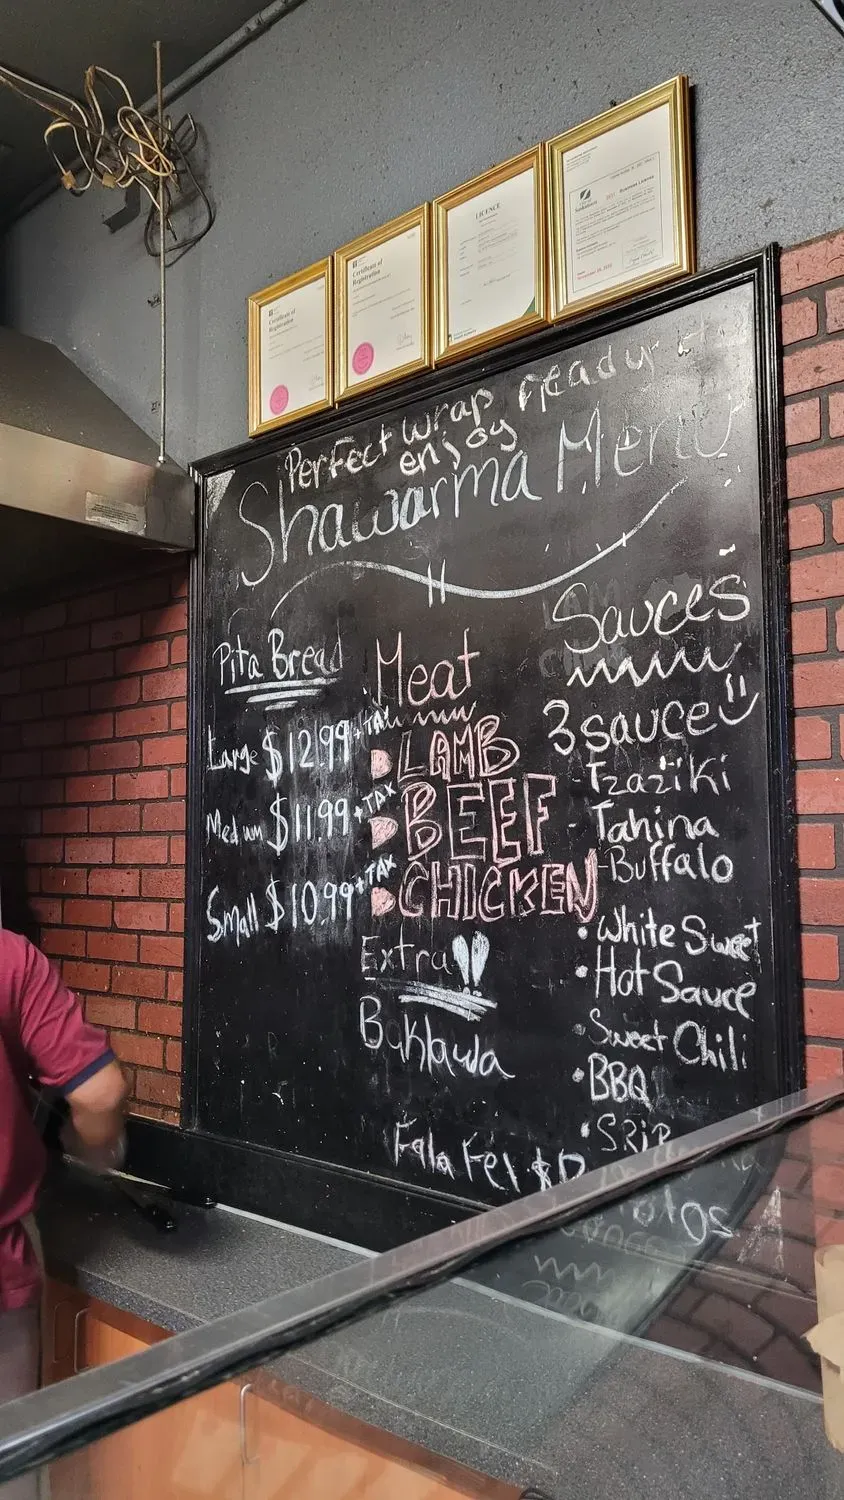 Certificate of
Registration
Certificate of
Registration
LICENCE
Business License
Perfect wrap ready
enjoy
Shawarma Menu
Pita Bread
Large $12.99 + TAX
Medum $11.99 + TAX
Small $10.99 + TAX
Meat
LAMB
BEEF
CHICKEN
Extra!!
Baklawa
Falafel
Sauces
3 sauce
- Tzaziki
- Tahina
- Buffalo
• White Sweet
• Hot Sauce
• Sweet Chili
• BBQ